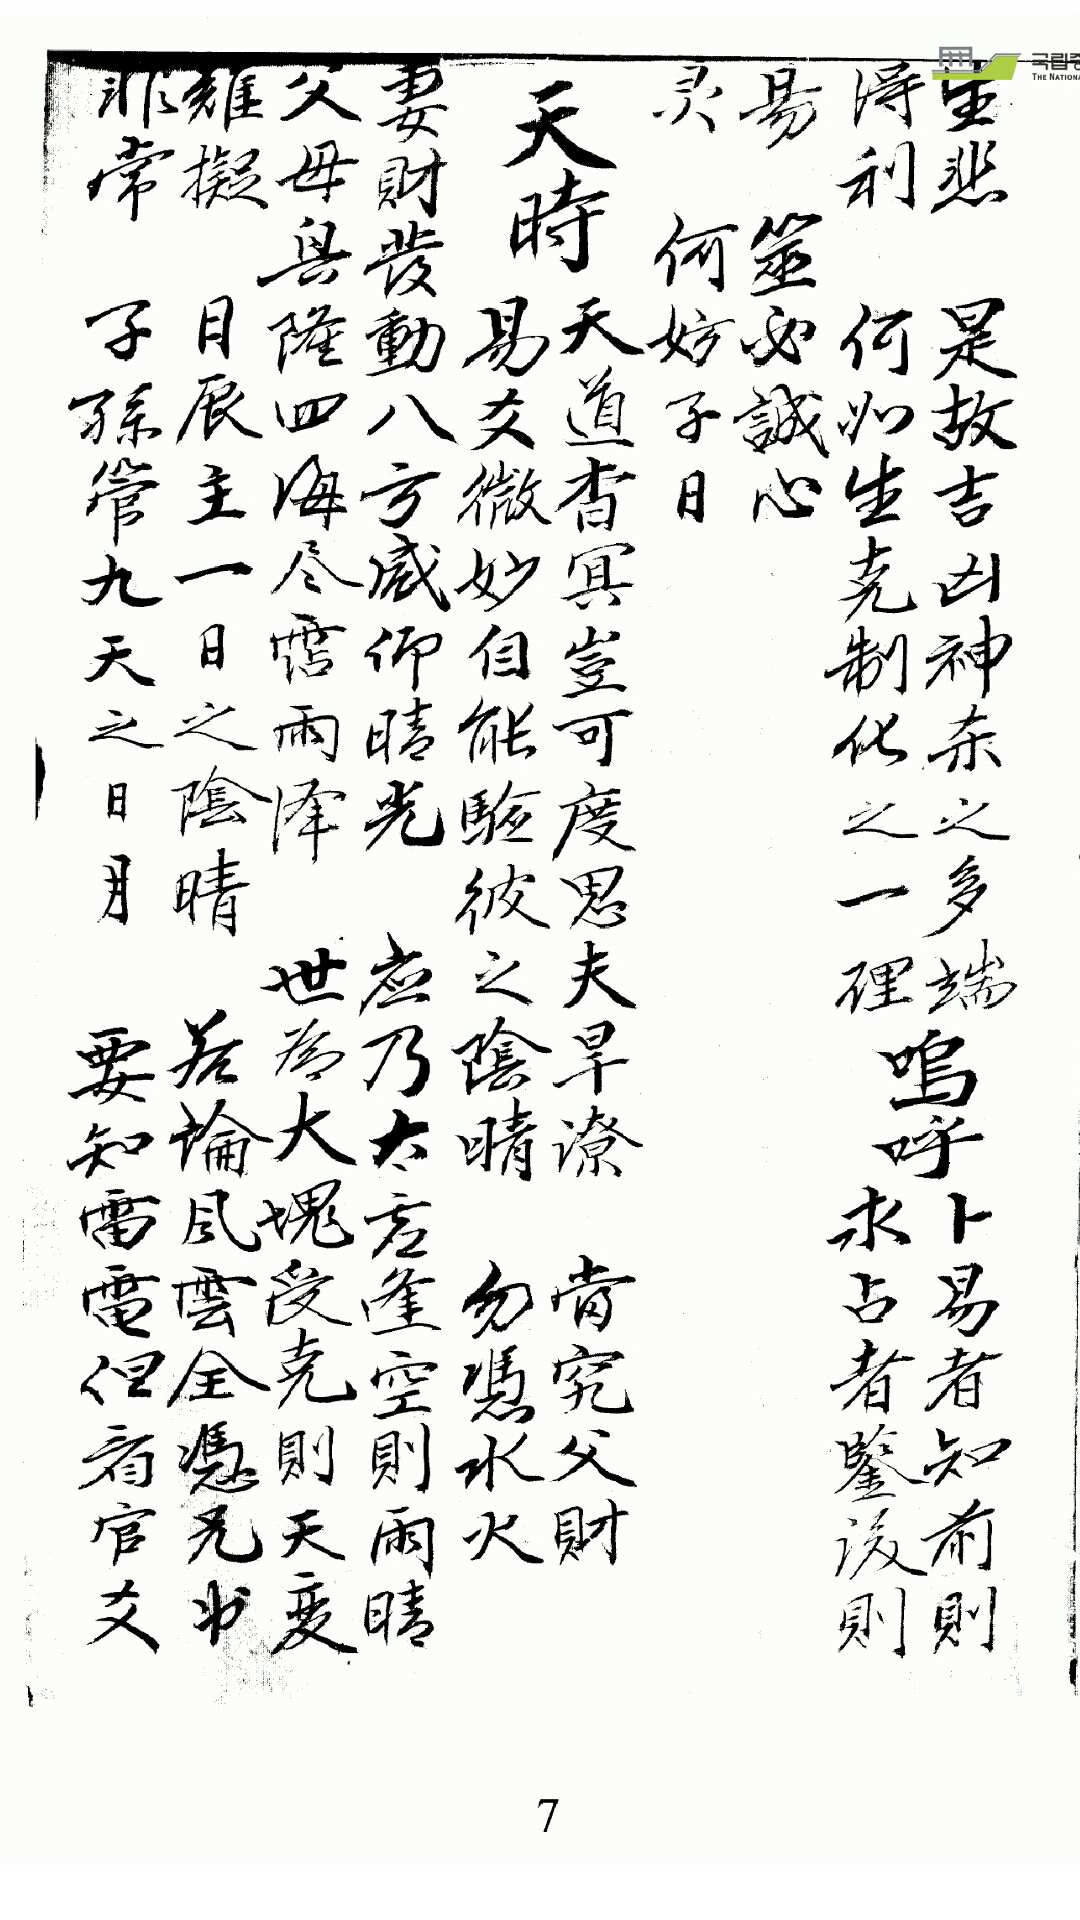 국립중
THE NATIONA
生悲 是故吉凶神杀之多端
得利 何如生克制化之一理
嗚呼
卜易者知前則
求占者鑒後則
易 筮必誠心
灵 何妨子日
天時
天道杳冥豈可度思夫旱潦 當究父財
易爻微妙自能驗彼之陰晴 勿憑水火
妻財發動八方咸仰晴光 應乃太虛逢空則雨晴
父母興隆四海尽霑雨澤 世為大塊受克則天变
難擬 日辰主一日之陰晴 若論風雲全憑兄弟
非常 子孫管九天之日月 要知雷電但看官爻
7